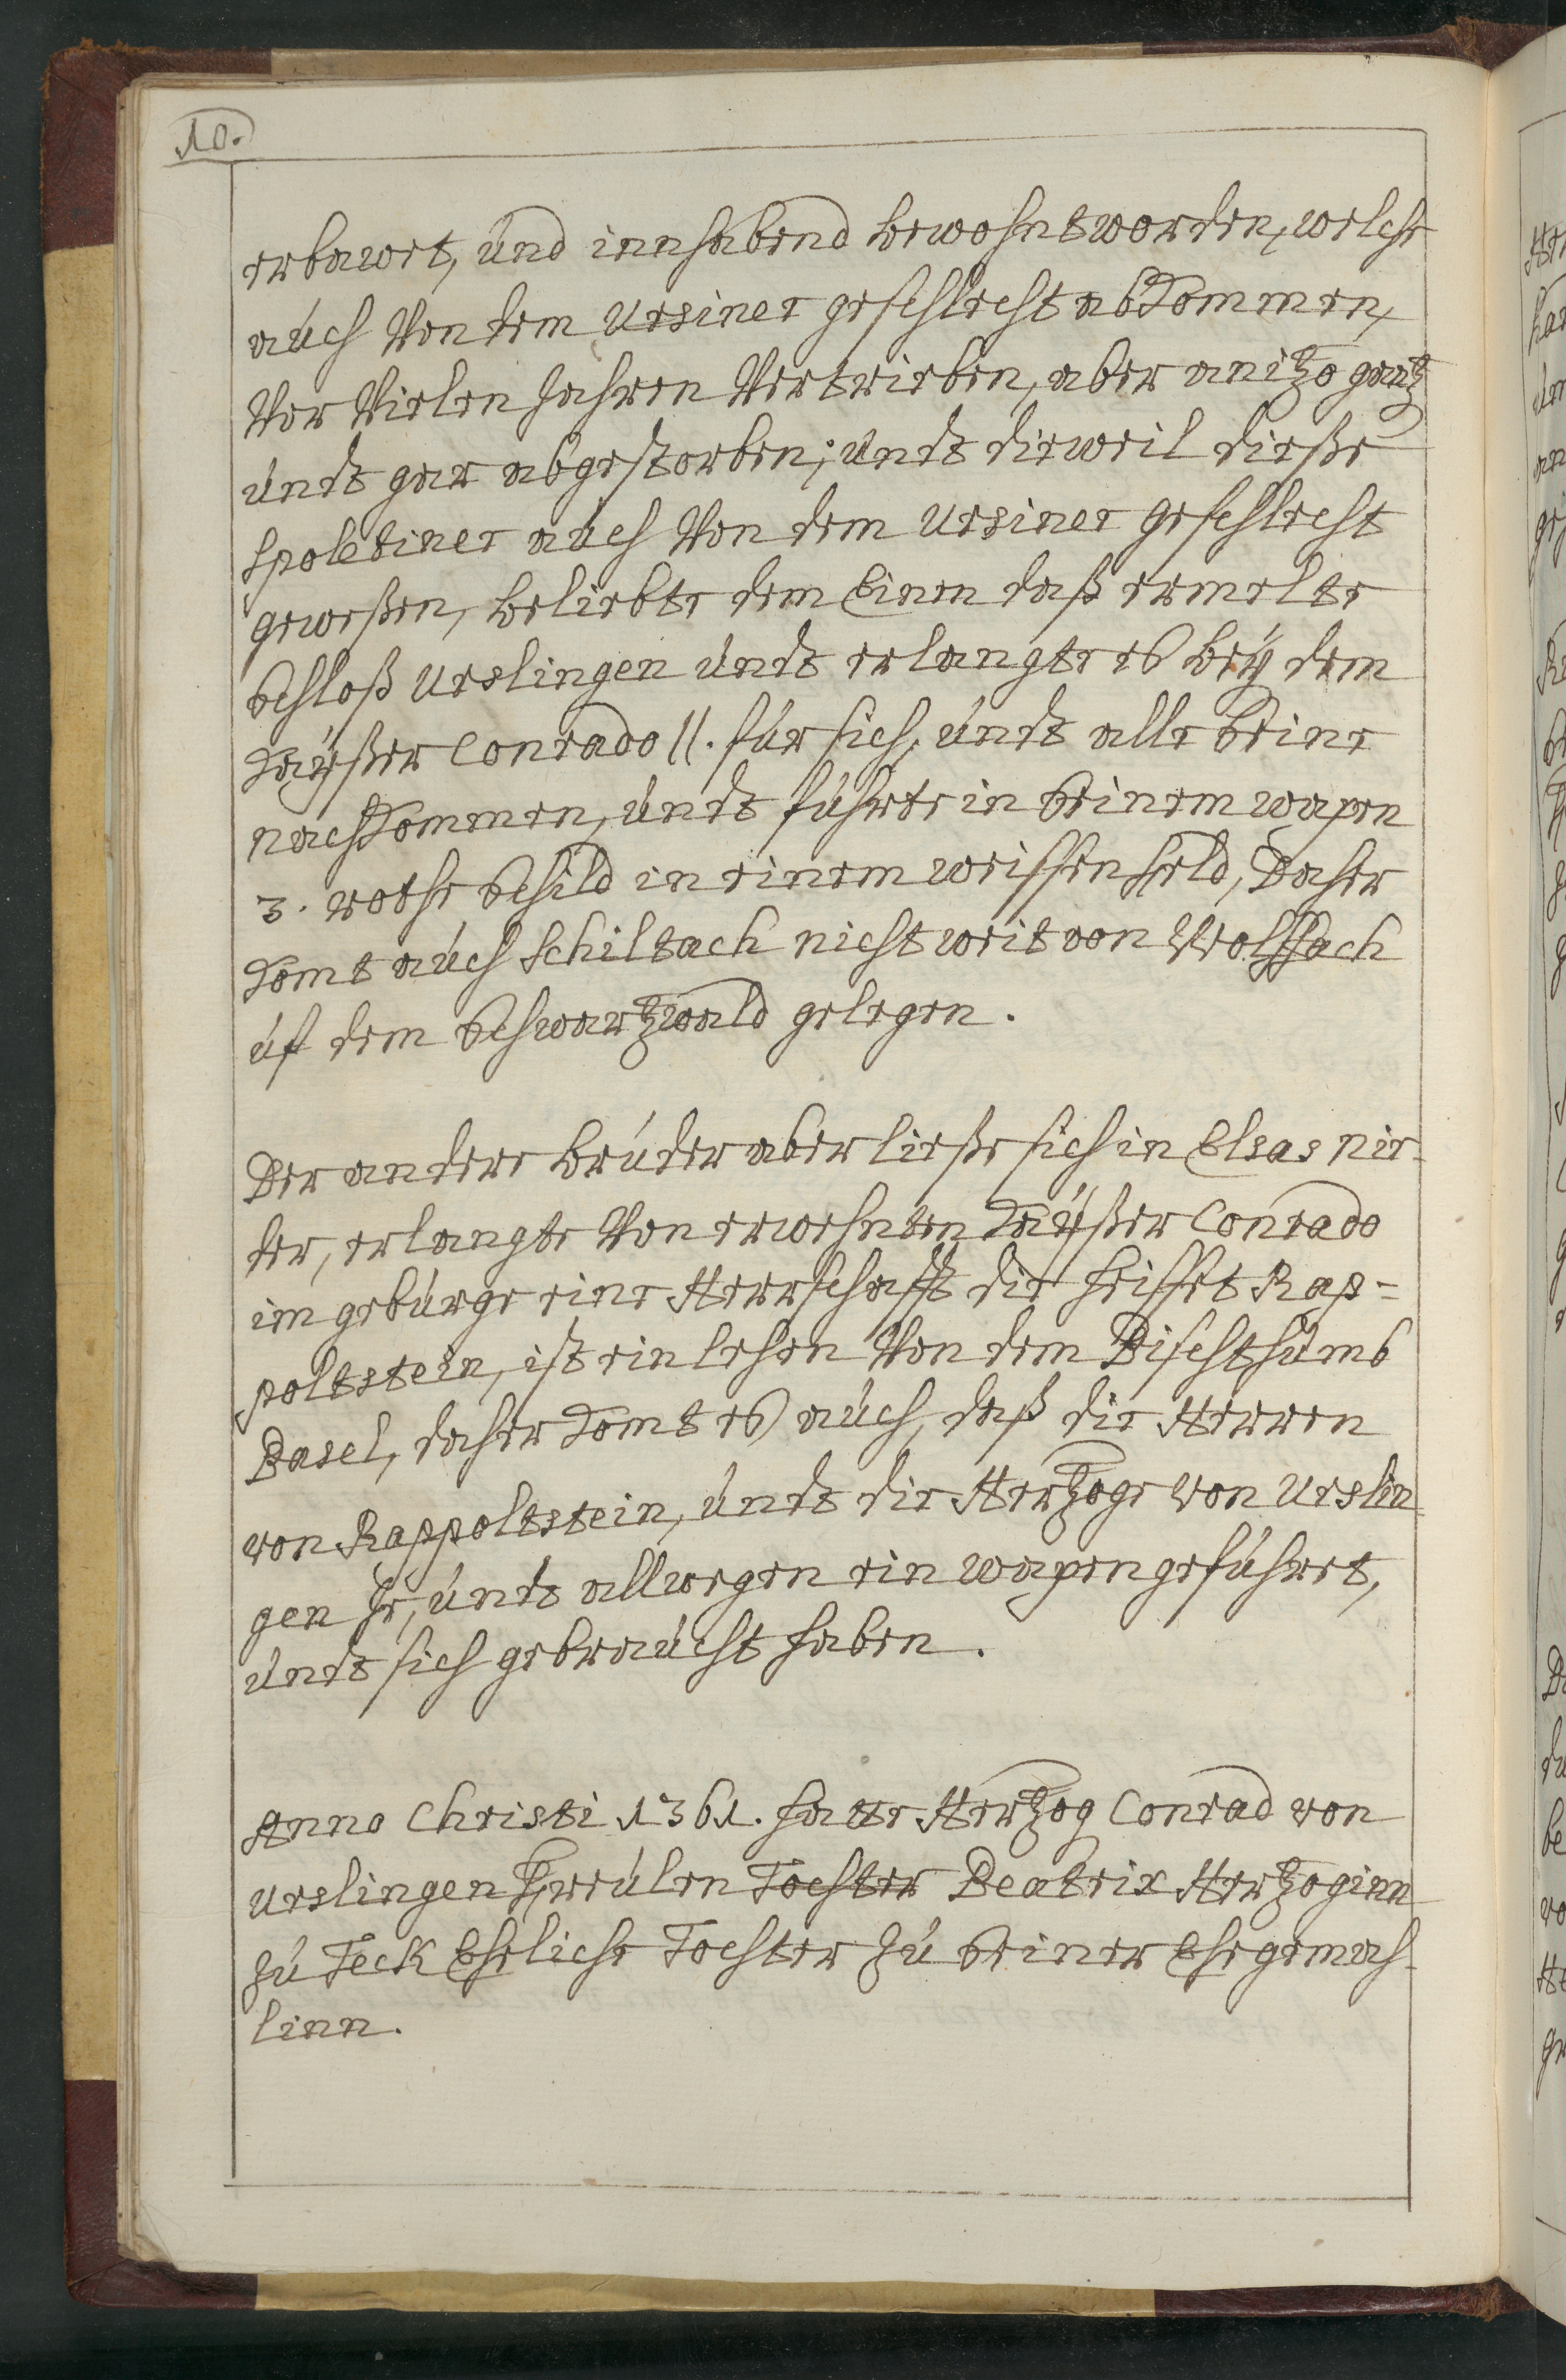 10.
erbawet, und innhabend bewohnt worden, welche
auch Von dem Ursiner geschlecht abkommen,
Vor Vielen Jahren Vertrieben, aber anitzo gantz
undt gar abgestorben; undt dieweil dieße
Spoletiner auch Von dem Ursiner geschlecht
geweßen, beliebte dem Einen daß ermelte
Schloß Urslingen undt erlangte es bey dem
Kayßer Conrado II. für sich, undt alle Seine
nachkommen, undt führte in Seinem wapen
3. rothe Schild in einem weissen feld, Daher
komt auch Schiltach nicht weit von Wolffach
uf dem Schwartzwald gelegen.
Der andere bruder aber ließe sich in Elsas nie-
der, erlangte Von erwehnten Kayßer Conrado
im gebürge eine Herrschafft die heisset Rap=
poltstein, ist ein lehen Von dem Bischthumb
Basel, daher komt es auch, daß die Herren
von Rappoltstein, undt die Hertzoge von Urslin-
gen Je, undt allwegen ein wapen geführet,
undt sich gebraucht haben.
Anno Christi 1361. hatte Hertzog Conrad von
Urslingen Tochter Beatrix Hertzoginn
zu Teck Eheliche Tochter zu Seiner Ehegemah-
linn.